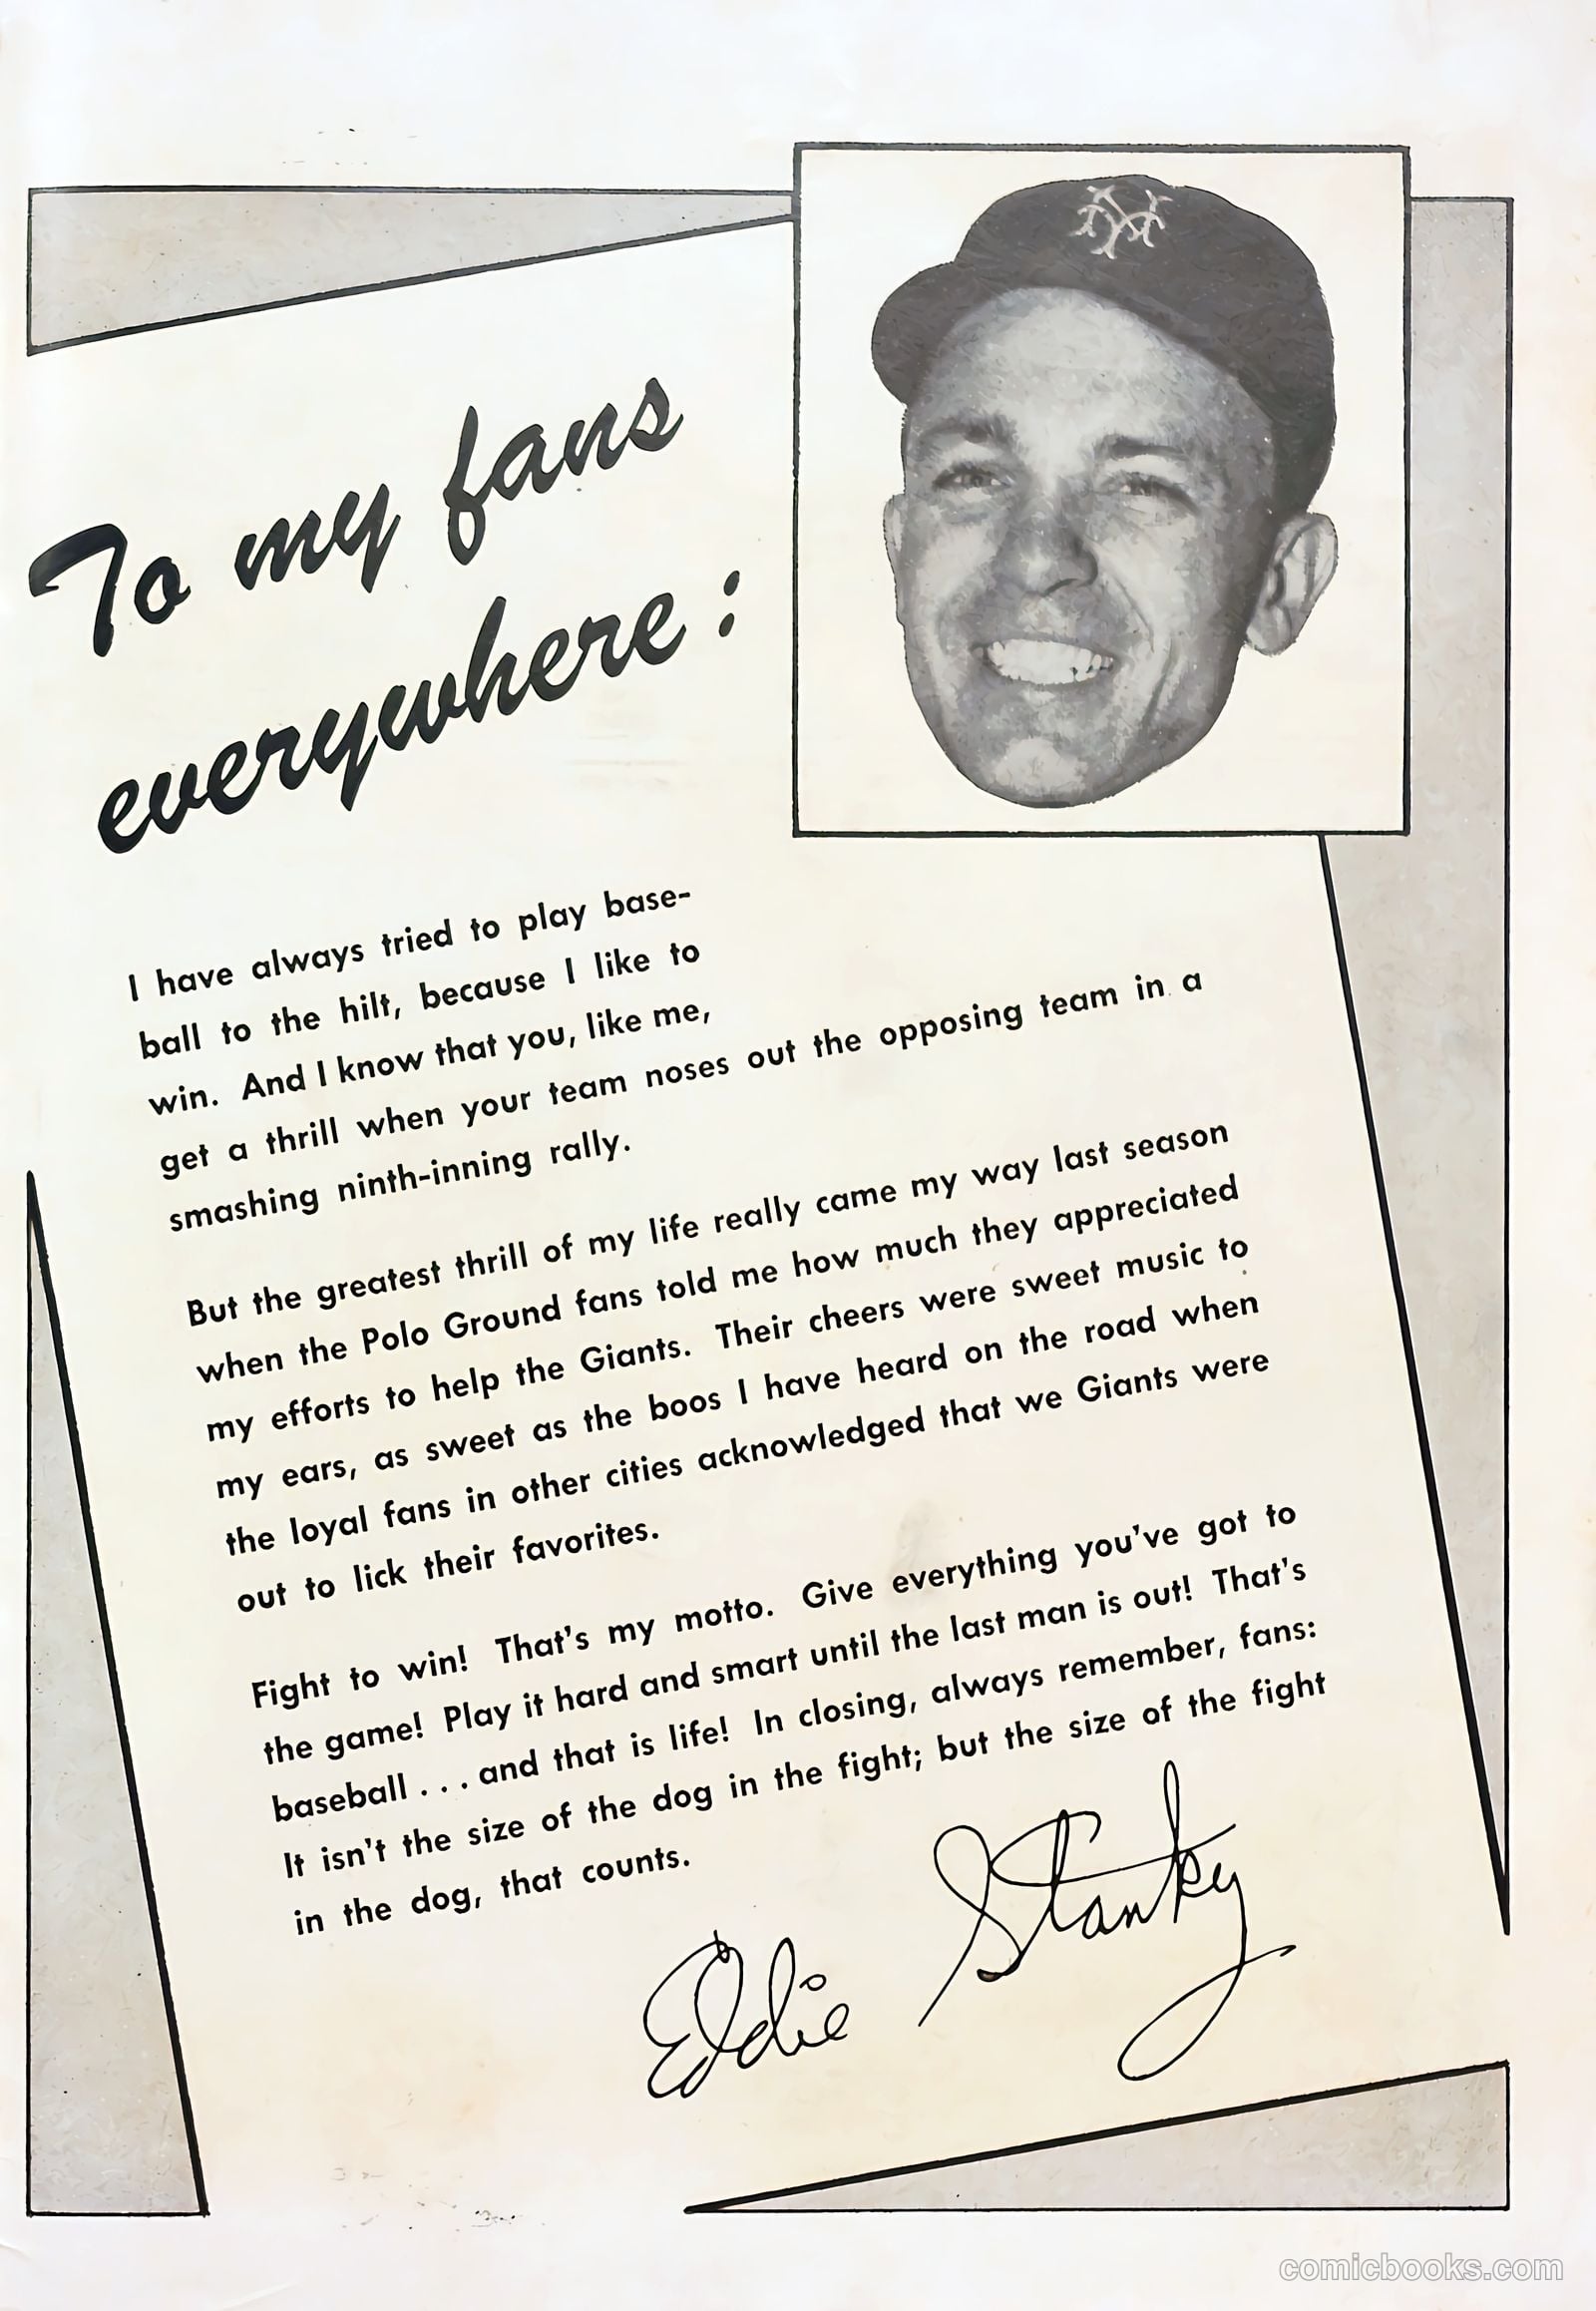 NY
To my fans
everywhere:
I have always tried to play base-
ball to the hilt, because I like to
win. And I know that you, like me,
get a thrill when your team noses out the opposing team in a
smashing ninth-inning rally.
But the greatest thrill of my life really came my way last season
when the Polo Ground fans told me how much they appreciated
my efforts to help the Giants. Their cheers were sweet music to
my ears, as sweet as the boos I have heard on the road when
the loyal fans in other cities acknowledged that we Giants were
out to lick their favorites.
Fight to win! That's my motto. Give everything you've got to
the game! Play it hard and smart until the last man is out! That's
baseball . . . and that is life! In closing, always remember, fans:
It isn't the size of the dog in the fight; but the size of the fight
in the dog, that counts.
Eddie Stanky
comicbooks.com